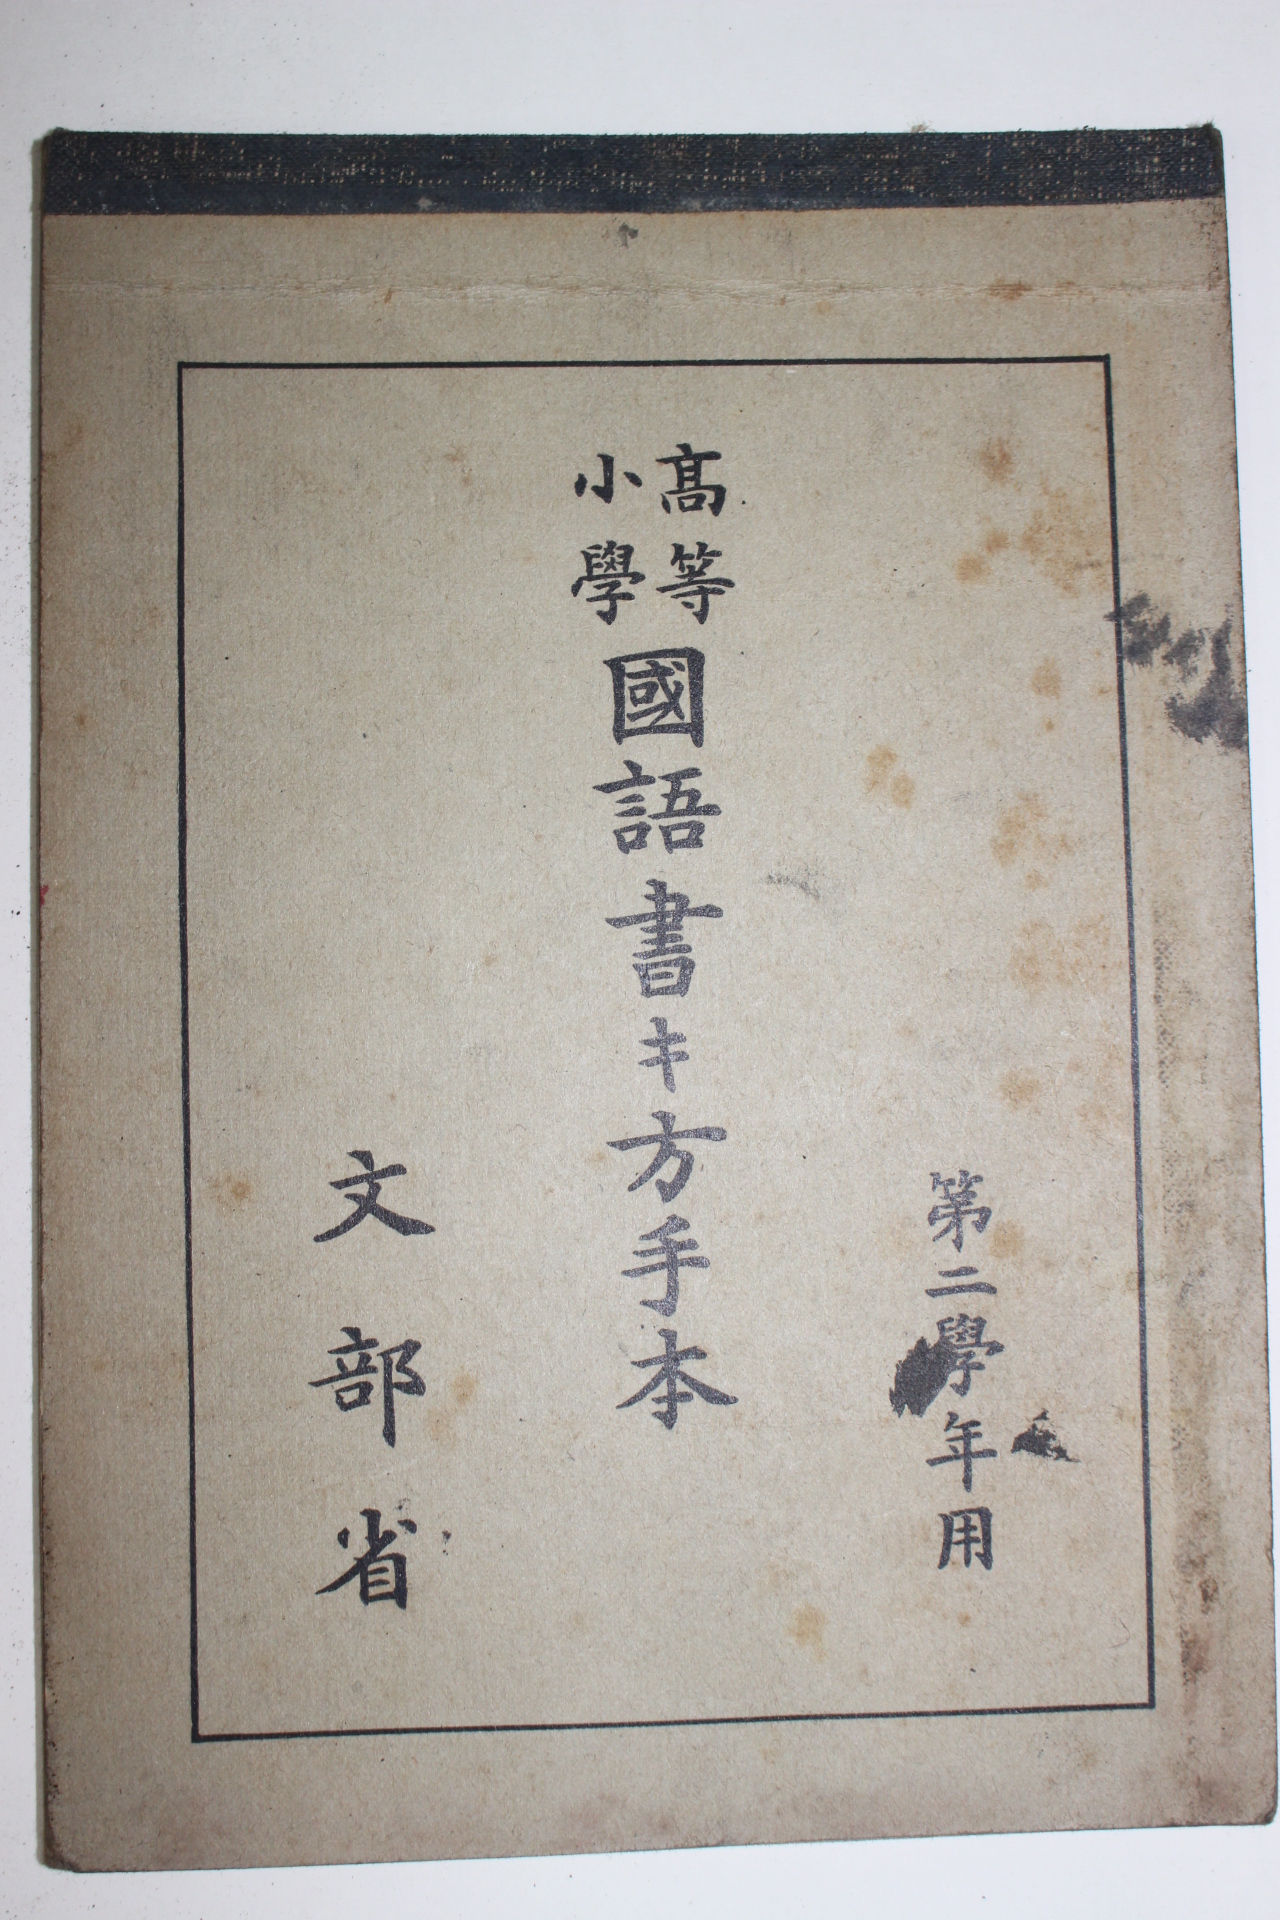 第二學年用
高等
小學
國語書キ方手本
文部省